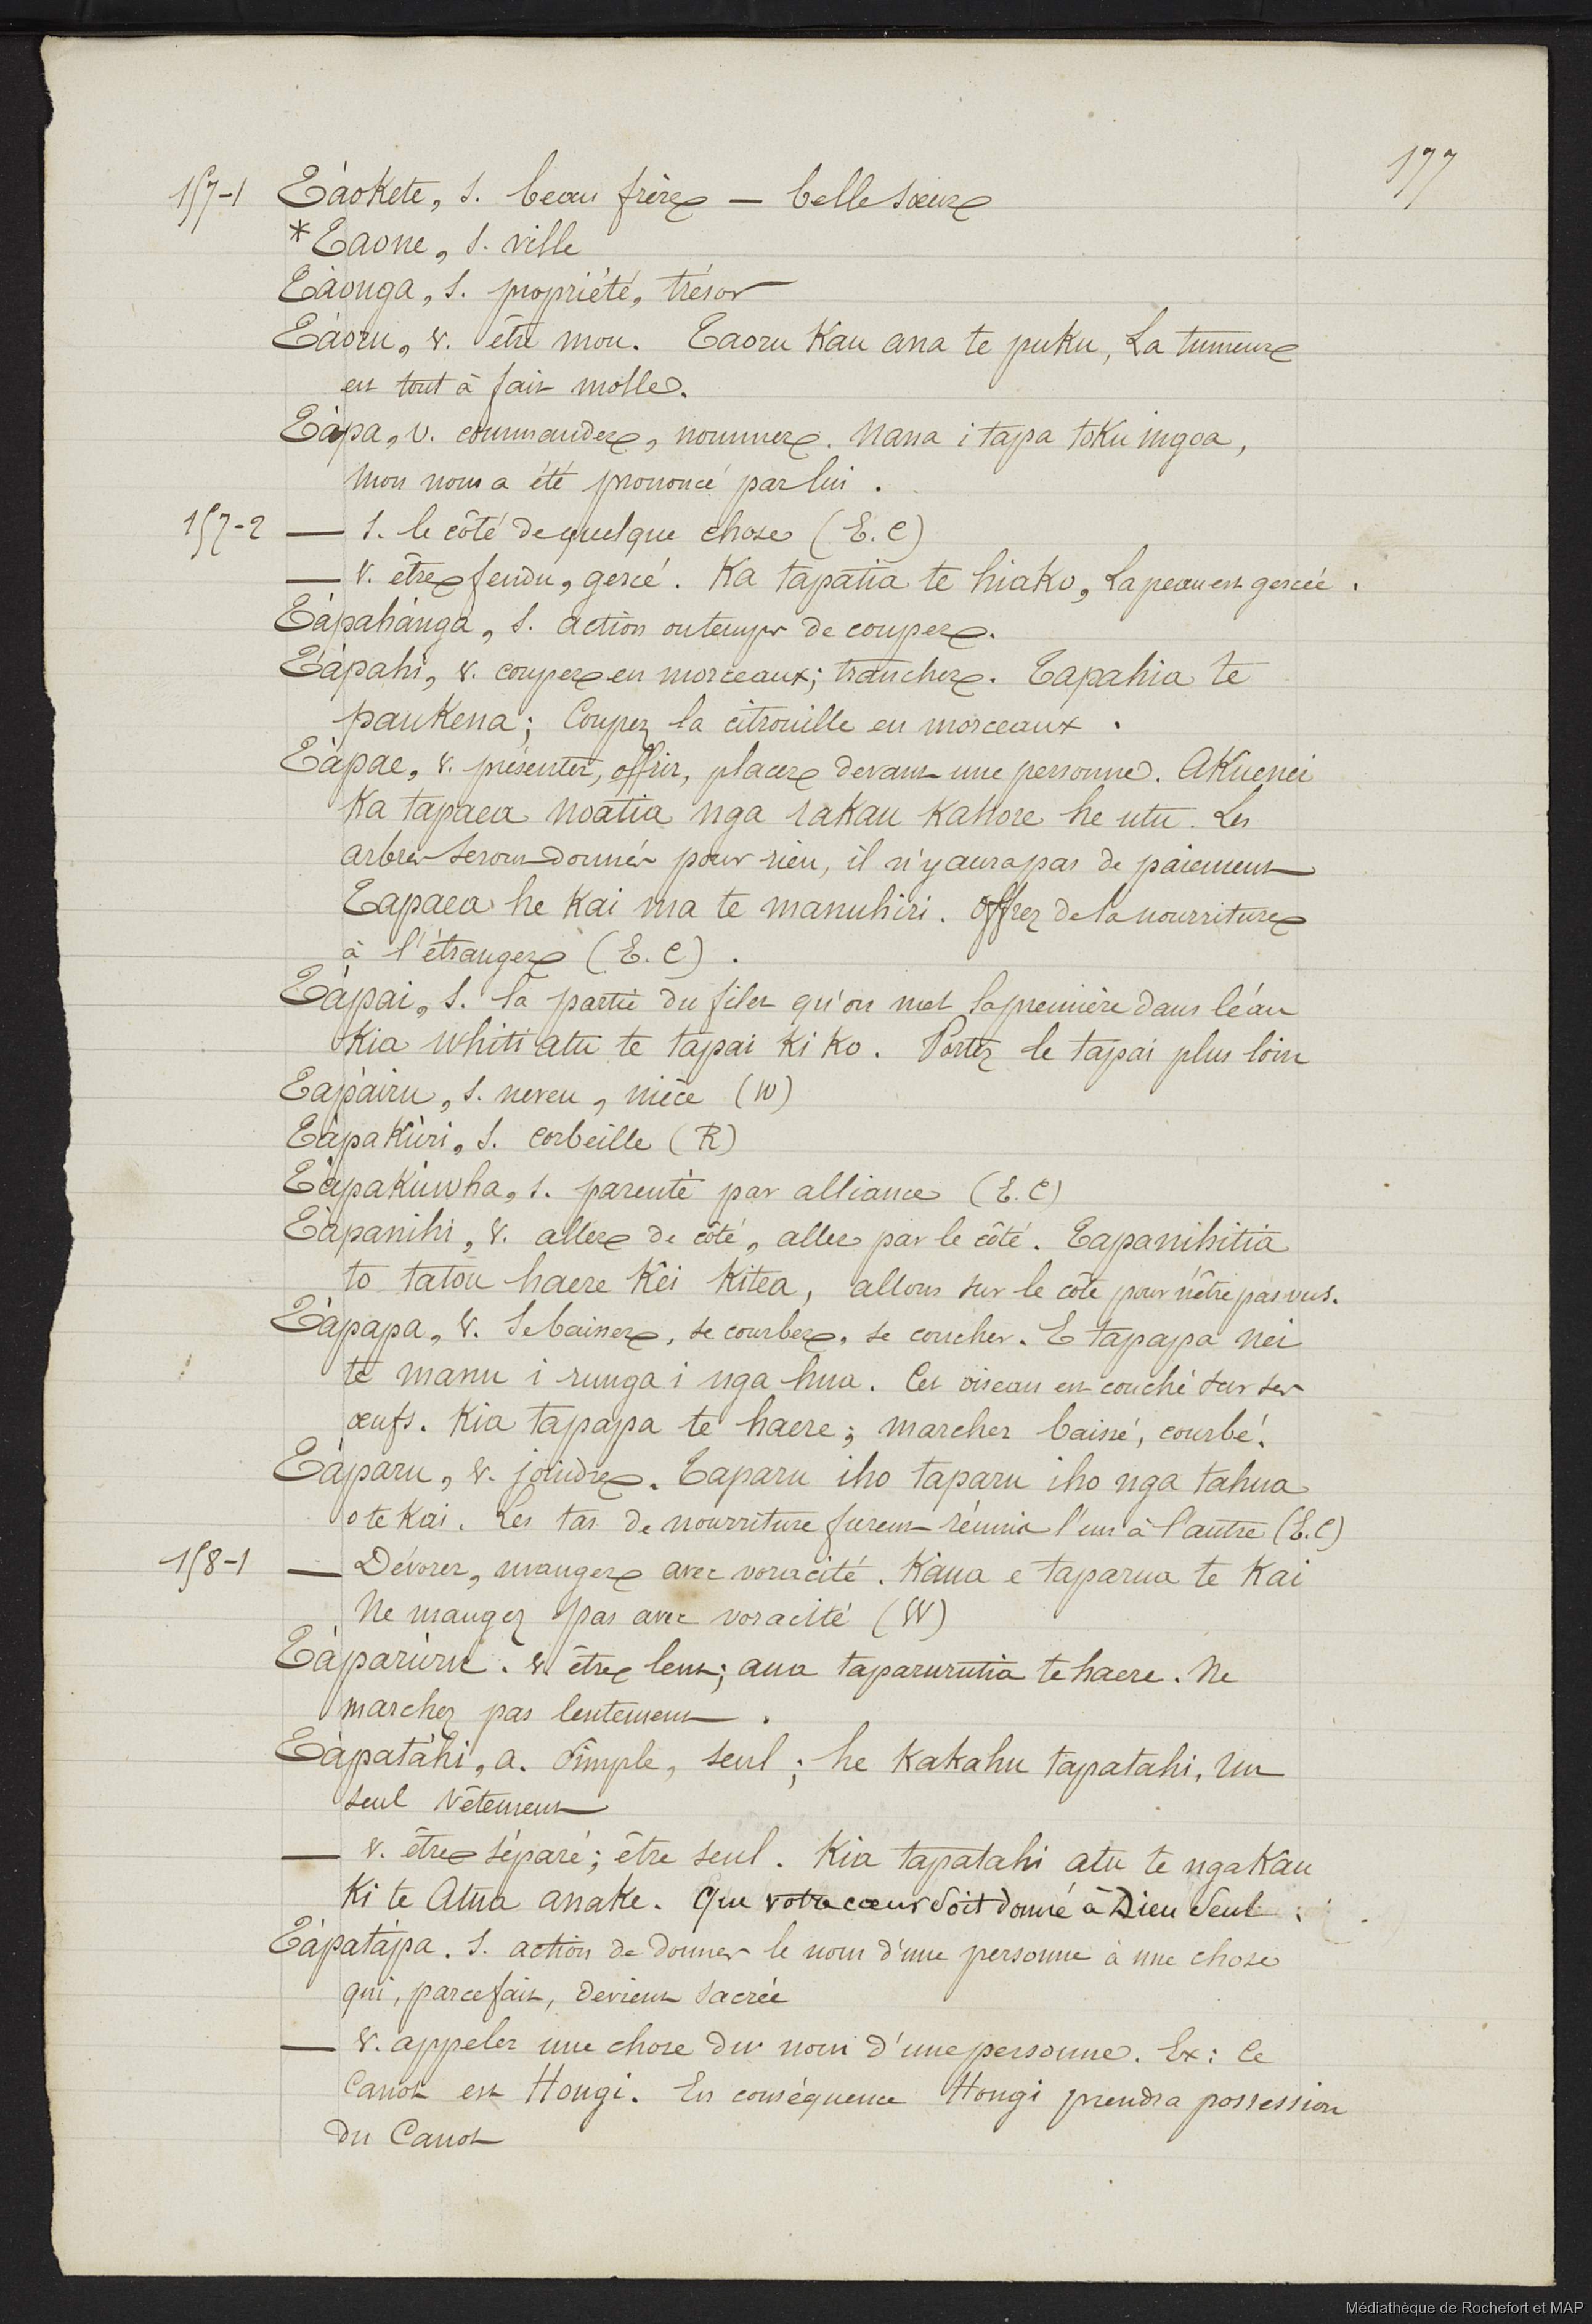 177
157-1 Tàokete, s. beau frère — belle sœur
*Taone, s. ville
Tàonga, s. propriété, trésor
Tàoru, v. être mou. Taoru kau ana te puku, La tumeur
est tout à fait molle.
Tàpa, v. commander, nommer. Nana i tapa toku ingoa,
Mon nom a été prononcé par lui.
157-2 — s. le côté de quelque chose (E.C)
— v. être fendu, gercé. Ka tapatia te hiako, La peau est gercée.
Tàpahánga, s. action ou temps de couper.
Tàpahi, v. couper en morceaux; trancher. Tapahia te
paukena; Coupez la citrouille en morceaux.
Tàpae, v. présenter, offrir, placer devant une personne. Akuenei
Ka tapaea noatia nga rakau kahore he utu. Les
arbres seront donnés pour rien, il n'y aura pas de paiement
Tapaea he kai ma te manuhiri. Offrez de la nourriture
à l'étranger (E.C).
Tàpai, s. la partie du filet qu'on met la première dans l'eau
Kia whiti atu te tapai ki ko. Portez le tapai plus loin
Tapàiru, s. neveu, nièce (W)
Tàpakùri, s. corbeille (R)
Tàpakùwha, s. parenté par alliance (E.C)
Tàpanihi, v. aller de côté, aller par le côté. Tapanihitia
to tatou haere kei kitea, allons sur le côte pour n'être pas vus.
Tàpapa, v. Se baisser, se courber, se coucher. E tapapa nei
te manu i runga i nga hua. Cet oiseau est couché sur ses
œufs. Kia tapapa te haere; marcher baissé, courbé.
Tàparu, v. joindre. Taparu iho taparu iho nga tahua
o te kai. Les tas de nourriture furent réunis l'un à l'autre (E.C)
158-1 — Dévorer, manger avec voracité. Kaua e taparua te kai
Ne mangez pas avec voracité (W)
Tàparùru. v. être lent; aua taparurutia te haere. Ne
marchez pas lentement.
Tàpatàhi, a. simple, seul; he kakahu tapatahi, un
seul vêtement
— v. être séparé; être seul. Kia tapatahi atu te ngakau
Ki te Atua anake. Que votre cœur soit donné à Dieu seul
Tàpatàpa. s. action de donner le nom d'une personne à une chose
qui, par ce fait, devient sacrée
— v. appeler une chose du nom d'une personne. Ex: Ce
Canot est Hongi. En conséquence Hongi prendra possession
du Canot
Médiathèque de Rochefort et MAP